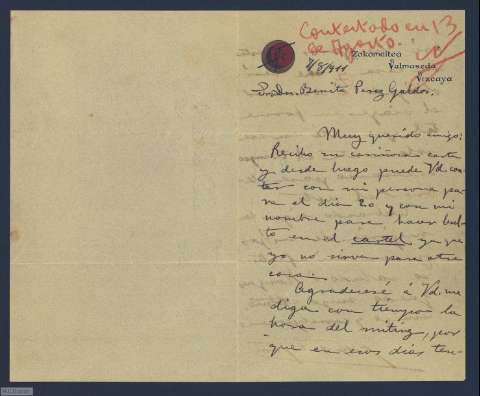 Contestado en 13
de Agosto.
Zokomeitea
Valmaseda
Vizcaya
7/8/911
Sr. Dn. Benito Perez Galdós.
Muy querido amigo:
Recibo su cariñosa carta
y desde luego puede Vd. con-
tar con mi persona pa-
ra el dia 20 y con mi
nombre para hacer bul-
to en el cartel ya que
yo no sirvo para otra
cosa.
Agradeceré á Vd. me
diga con tiempo la
hora del miting, por
que en esos dias ten-